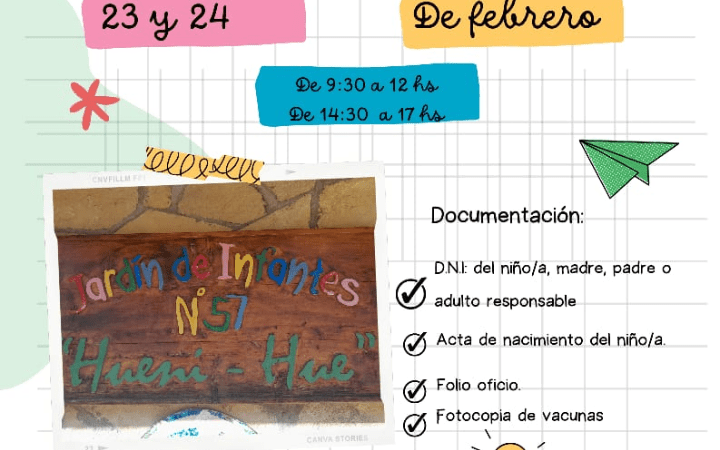 23 y 24
De febrero
De 9:30 a 12 hs
De 14:30 a 17 hs
Documentación:
D.N.I: del niño/a, madre, padre o
adulto responsable
Acta de nacimiento del niño/a.
Folio oficio.
Fotocopia de vacunas
Jardín de Infantes
N° 57
"Hueni - Hue"
CANVA STORIES